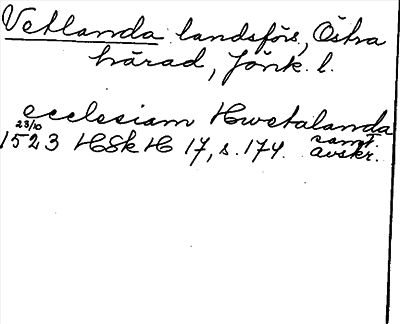 Vetlanda landsförs, Östra
härad, Jönk. l.
ecclesiam Hwetalanda
23/10
1523 HSkH 17, s. 174. samt. avskr.